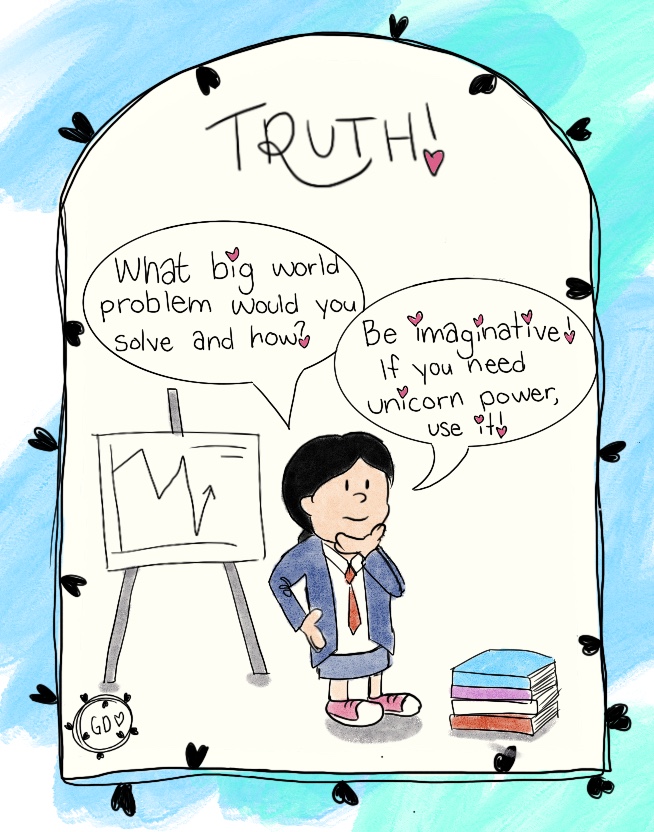 TRUTH!
What big world
problem would you
solve and how?
Be imaginative!
If you need
unicorn power,
use it!
GD